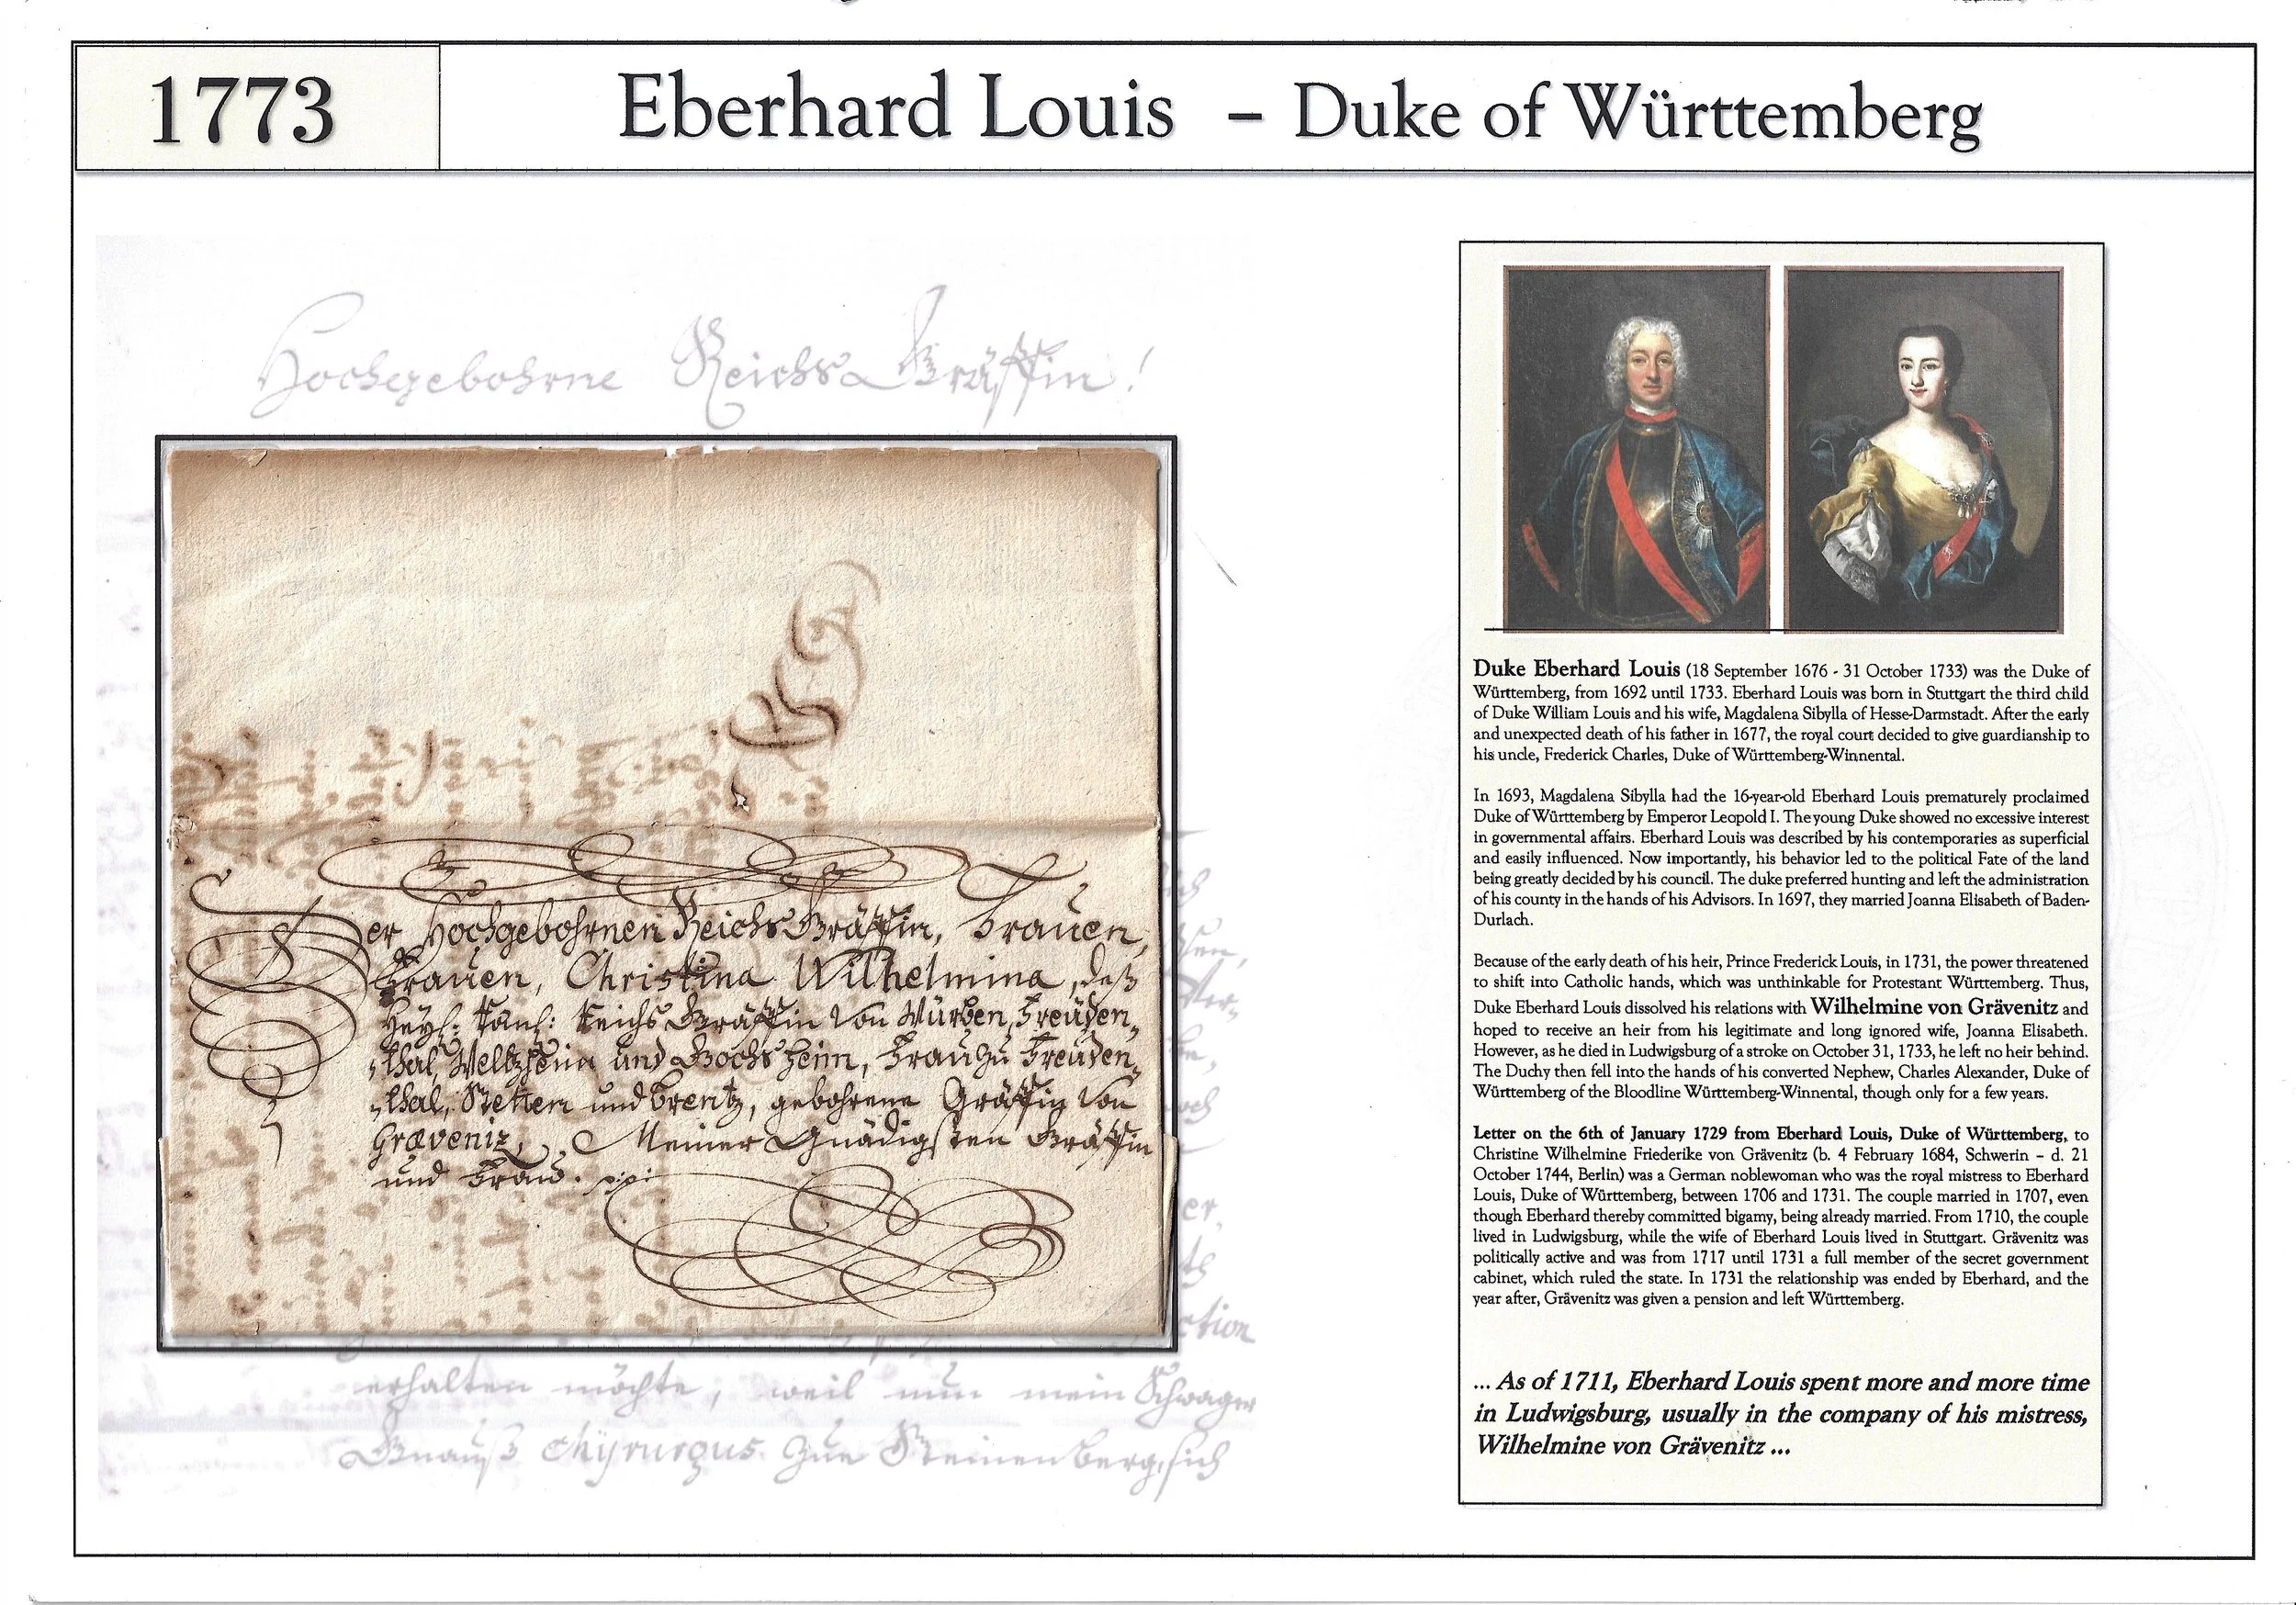 1773
Eberhard Louis – Duke of Württemberg
Hochgebohrne Reichs Gräffin!
Der Hochgebohrnen Reichs Gräffin, Frauen,
Frauen, Christina Wilhelmina, deß
Heyl: Röm: Reichs Gräffin von Würben, Freuden„
„thal, Weltzheim und Gochsheim, Frau zu Freuden„
„thal, Stetten und Brentz, gebohrene Gräffin von
Grævenitz, Meiner Gnädigsten Gräffin
und Frau.
ction
erhalten möchte, weil nun mein Schwager
Gnauß Chyrurgus zue Steinenberg, sich
Duke Eberhard Louis (18 September 1676 - 31 October 1733) was the Duke of
Württemberg, from 1692 until 1733. Eberhard Louis was born in Stuttgart the third child
of Duke William Louis and his wife, Magdalena Sibylla of Hesse-Darmstadt. After the early
and unexpected death of his father in 1677, the royal court decided to give guardianship to
his uncle, Frederick Charles, Duke of Württemberg-Winnental.
In 1693, Magdalena Sibylla had the 16-year-old Eberhard Louis prematurely proclaimed
Duke of Württemberg by Emperor Leopold I. The young Duke showed no excessive interest
in governmental affairs. Eberhard Louis was described by his contemporaries as superficial
and easily influenced. Now importantly, his behavior led to the political Fate of the land
being greatly decided by his council. The duke preferred hunting and left the administration
of his county in the hands of his Advisors. In 1697, they married Joanna Elisabeth of Baden-
Durlach.
Because of the early death of his heir, Prince Frederick Louis, in 1731, the power threatened
to shift into Catholic hands, which was unthinkable for Protestant Württemberg. Thus,
Duke Eberhard Louis dissolved his relations with Wilhelmine von Grävenitz and
hoped to receive an heir from his legitimate and long ignored wife, Joanna Elisabeth.
However, as he died in Ludwigsburg of a stroke on October 31, 1733, he left no heir behind.
The Duchy then fell into the hands of his converted Nephew, Charles Alexander, Duke of
Württemberg of the Bloodline Württemberg-Winnental, though only for a few years.
Letter on the 6th of January 1729 from Eberhard Louis, Duke of Württemberg, to
Christine Wilhelmine Friederike von Grävenitz (b. 4 February 1684, Schwerin – d. 21
October 1744, Berlin) was a German noblewoman who was the royal mistress to Eberhard
Louis, Duke of Württemberg, between 1706 and 1731. The couple married in 1707, even
though Eberhard thereby committed bigamy, being already married. From 1710, the couple
lived in Ludwigsburg, while the wife of Eberhard Louis lived in Stuttgart. Grävenitz was
politically active and was from 1717 until 1731 a full member of the secret government
cabinet, which ruled the state. In 1731 the relationship was ended by Eberhard, and the
year after, Grävenitz was given a pension and left Württemberg.
... As of 1711, Eberhard Louis spent more and more time
in Ludwigsburg, usually in the company of his mistress,
Wilhelmine von Grävenitz ...